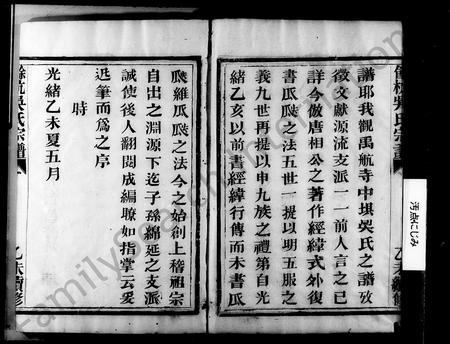 譜耶我觀禹航寺中垻吳氏之譜攷
徵文獻源流支派一一前人言之已
詳今倣唐相公之著作經緯式外復
書瓜瓞之法五世一提以明五服之
義九世再提以申九族之禮第自光
緒乙亥以前書經緯行傳而未書瓜
瓞維瓜瓞之法今之始創上稽祖宗
自出之淵源下迄子孫綿延之支派
誠使後人翻閱成編瞭如指掌云爰
迟筆而為之序
時
光緒乙未夏五月
餘杭吳氏宗譜
乙未續修
餘杭吳氏宗譜
乙未續修
汚点にじみ
FamilySearch International